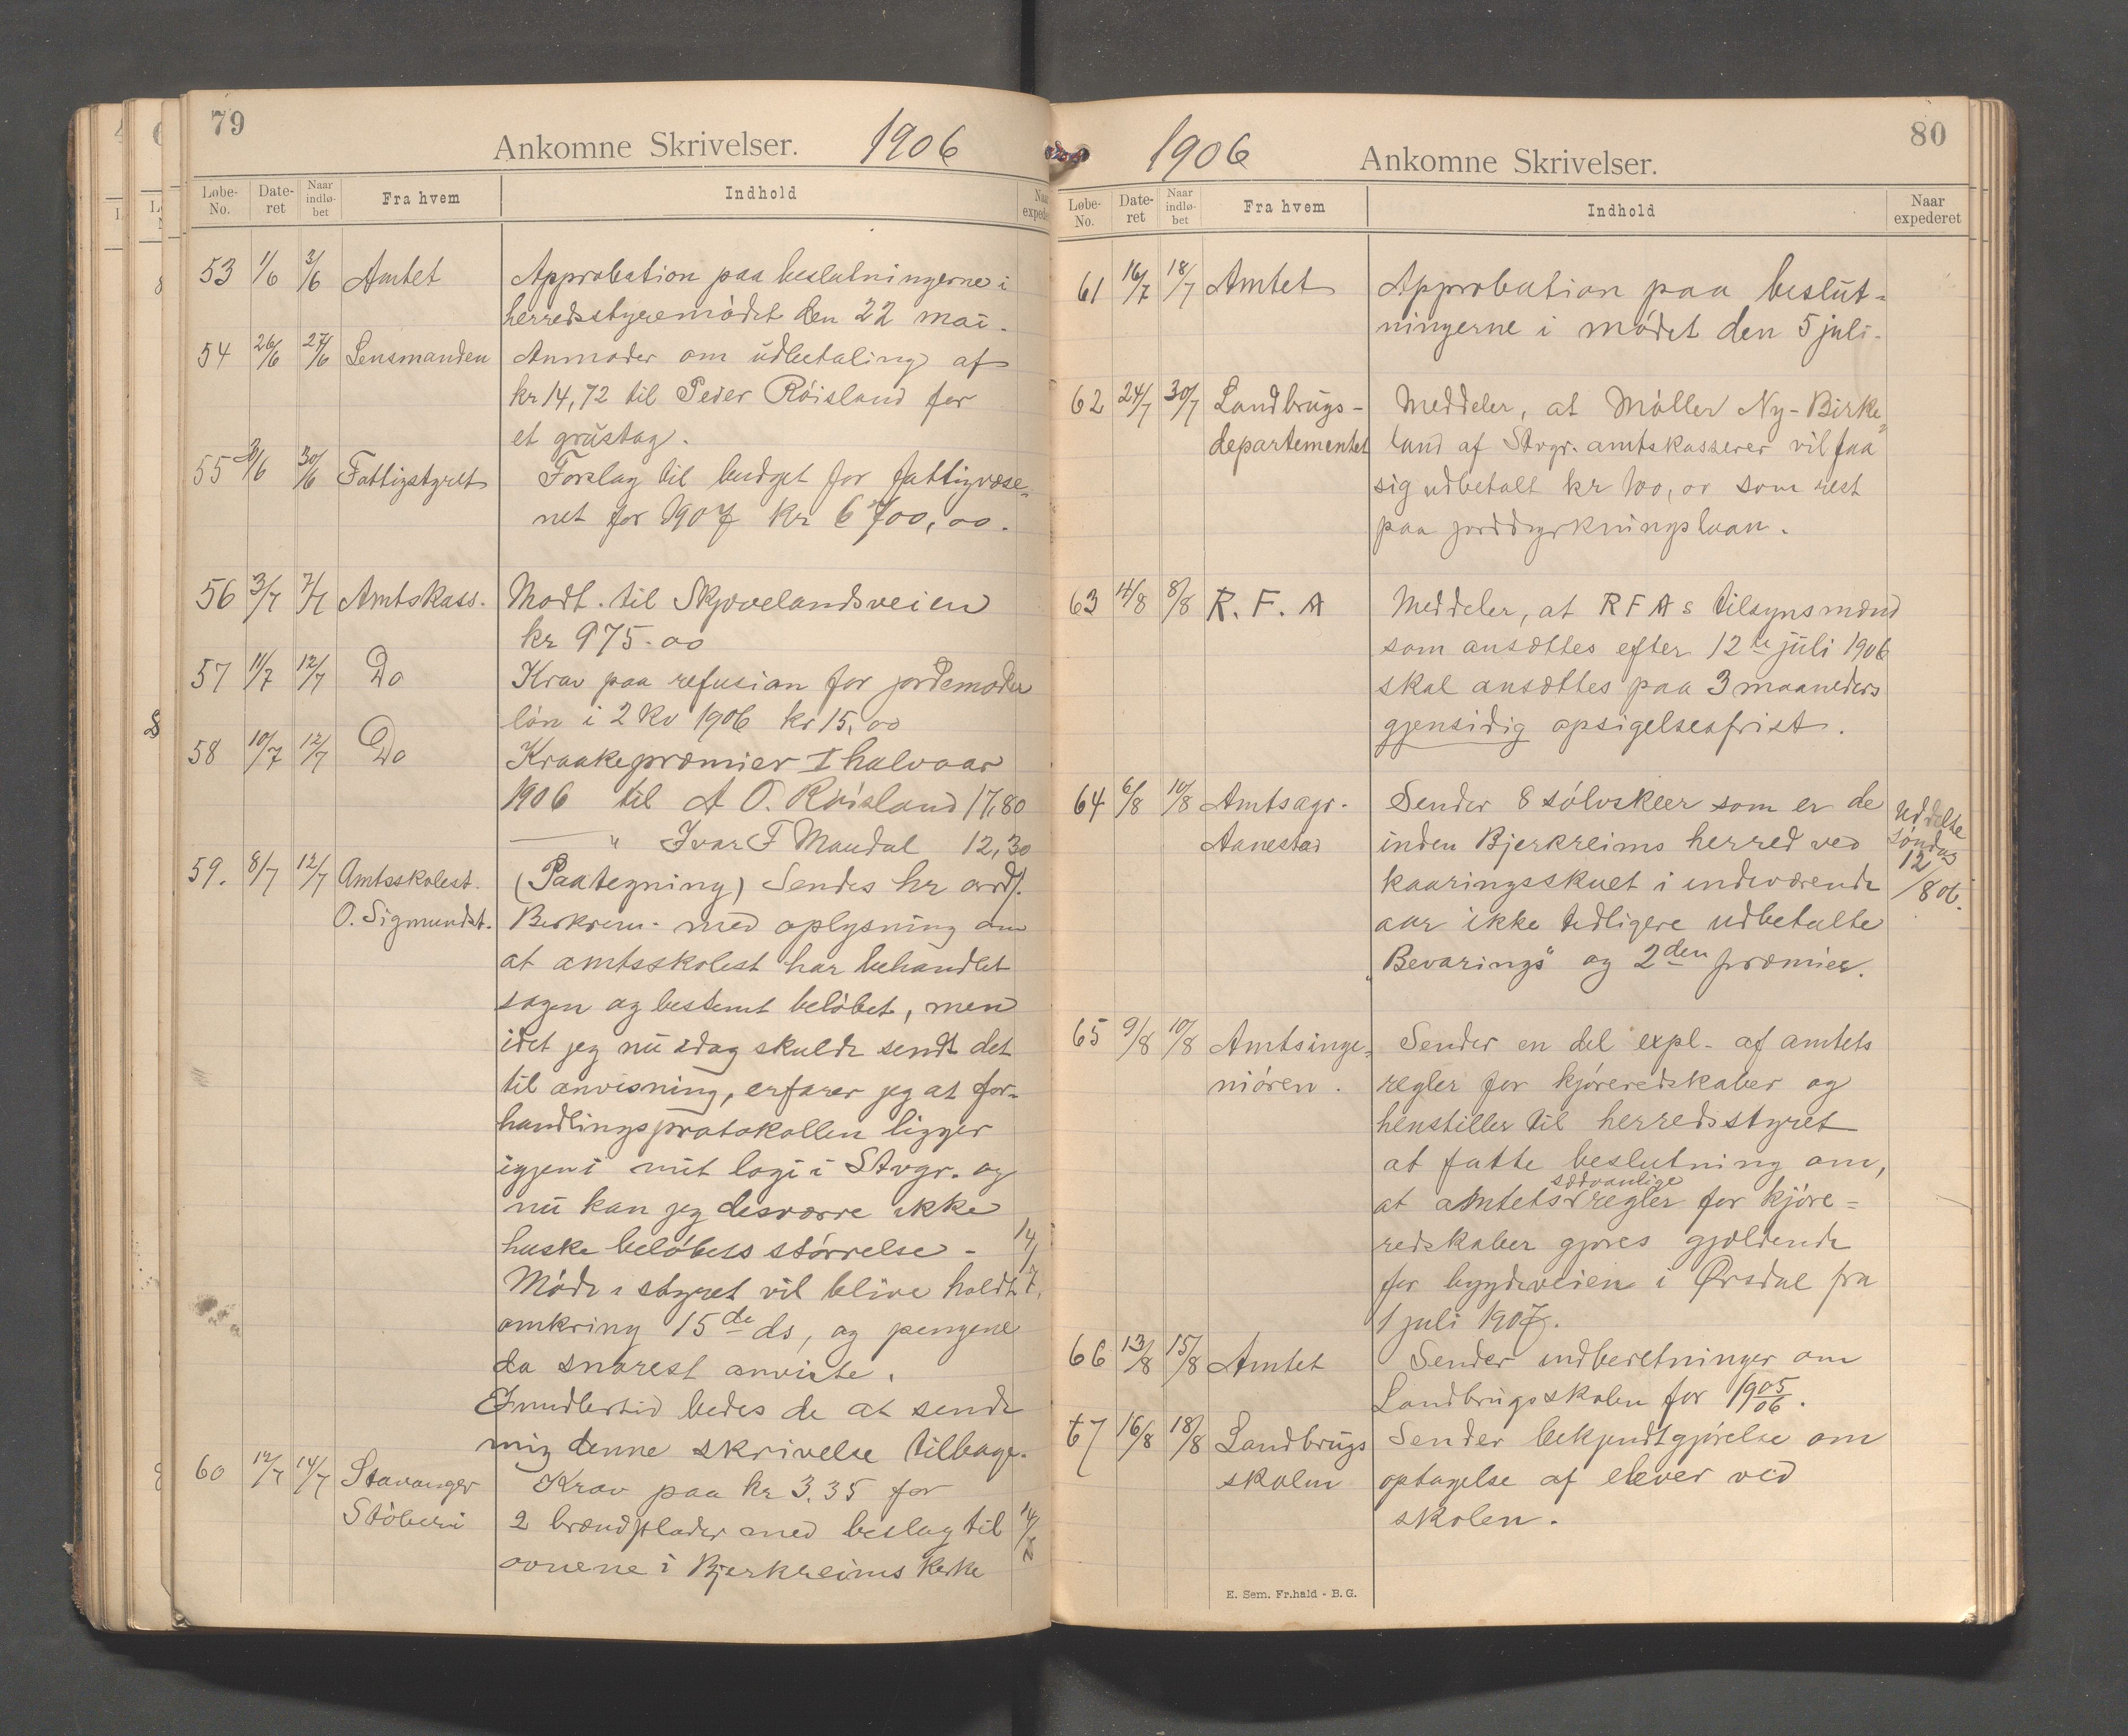 79
Ankomne Skrivelser. 1906
Løbe-No. Date-ret Naar indlø-bet Fra hvem Indhold
53 1/6 3/6 Amtet Approbation paa beslutningerne i
herredsstyremödet den 22 mai.
54 26/6 27/6 Lensmanden Anmoder om udbetaling af
kr 14,72 til Peder Röisland for
et grustag.
55 30/6 Fattigstyret Forslag til budget for fattigvæse-
net for 1907 kr 6700,00.
56 3/7 7/7 Amtskass. Modt. til Skjævelandsveien
kr 975.00
57 11/7 12/7 Do Krav paa refusion for jordemoder
lön i 2 Kv 1906 kr 15,00
58 10/7 12/7 Do Kraakepræmier I halvaar
1906 til A O. Röisland 17,80
" Ivar F Maudal 12,30
59. 8/7 12/7 Amtsskolest. (Paategning) Sendes hr ordf.
O. Sigmundst. Berkrem. med oplysning om
at amtsskolest har behandlet
sagen og bestemt belöbet, men
idet jeg nu idag skulde sendt det
til anvisning, erfarer jeg at for-
handlingsprotokollen ligger
igjen i mit logi i Stvgr. og
nu kan jeg desværre ikke
huske belöbets störrelse -
Möde i styret vil blive holdt
omkring 15de ds, og pengene
da snarest anviste.
Imidlertid bedes de at sende
mig denne skrivelse tilbage.
60 12/7 14/7 Stavanger Krav paa kr 3.35 for
Stöberi 2 brændplader med beslag til
ovnene i Bjerkreims kirke
80
1906 Ankomne Skrivelser.
Løbe-No. Date-ret Naar indlø-bet Fra hvem Indhold Naar expederet
61 16/7 18/7 Amtet Approbation paa beslut-
ningerne i mödet den 5 juli.
62 24/7 30/7 Landbrugs- Meddeler, at Möller Ny-Birke-
departementet land af Stvgr. amtskasserer vil faa
sig udbetalt kr 100,00 som rest
paa jorddyrkningslaan.
63 4/8 8/8 R. F. A Meddeler, at R F A s tilsynsmænd
som ansættes efter 12te juli 1906
skal ansættes paa 3 maaneders
gjensidig opsigelsesfrist.
64 6/8 10/8 Amtsagr. Sender 8 sölvskeer som er de Uddelte
Aanestad inden Bjerkreims herred ved söndag
kaaringsskuet i indeværende 12/8 06.
aar ikke tidligere udbetalte
"Bevarings" og 2den præmier.
65 9/8 10/8 Amtsinge- Sender en del expl. af amtets
niören. regler for kjøreredskaber og
henstiller til herredsstyret
at fatte beslutning om,
sædvanlige
at amtets regler for kjöre-
redskaber gjöres gjældende
for bygdeveien i Ørsdal fra
1 juli 1907.
66 13/8 15/8 Amtet Sender indberetninger om
Landbrugsskolen for 1905/06.
67 16/8 18/8 Landbrugs Sender bekjendtgjörelse om
skolen optagelse af elever ved
skolen.
E. Sem. Fr.hald - B. G.